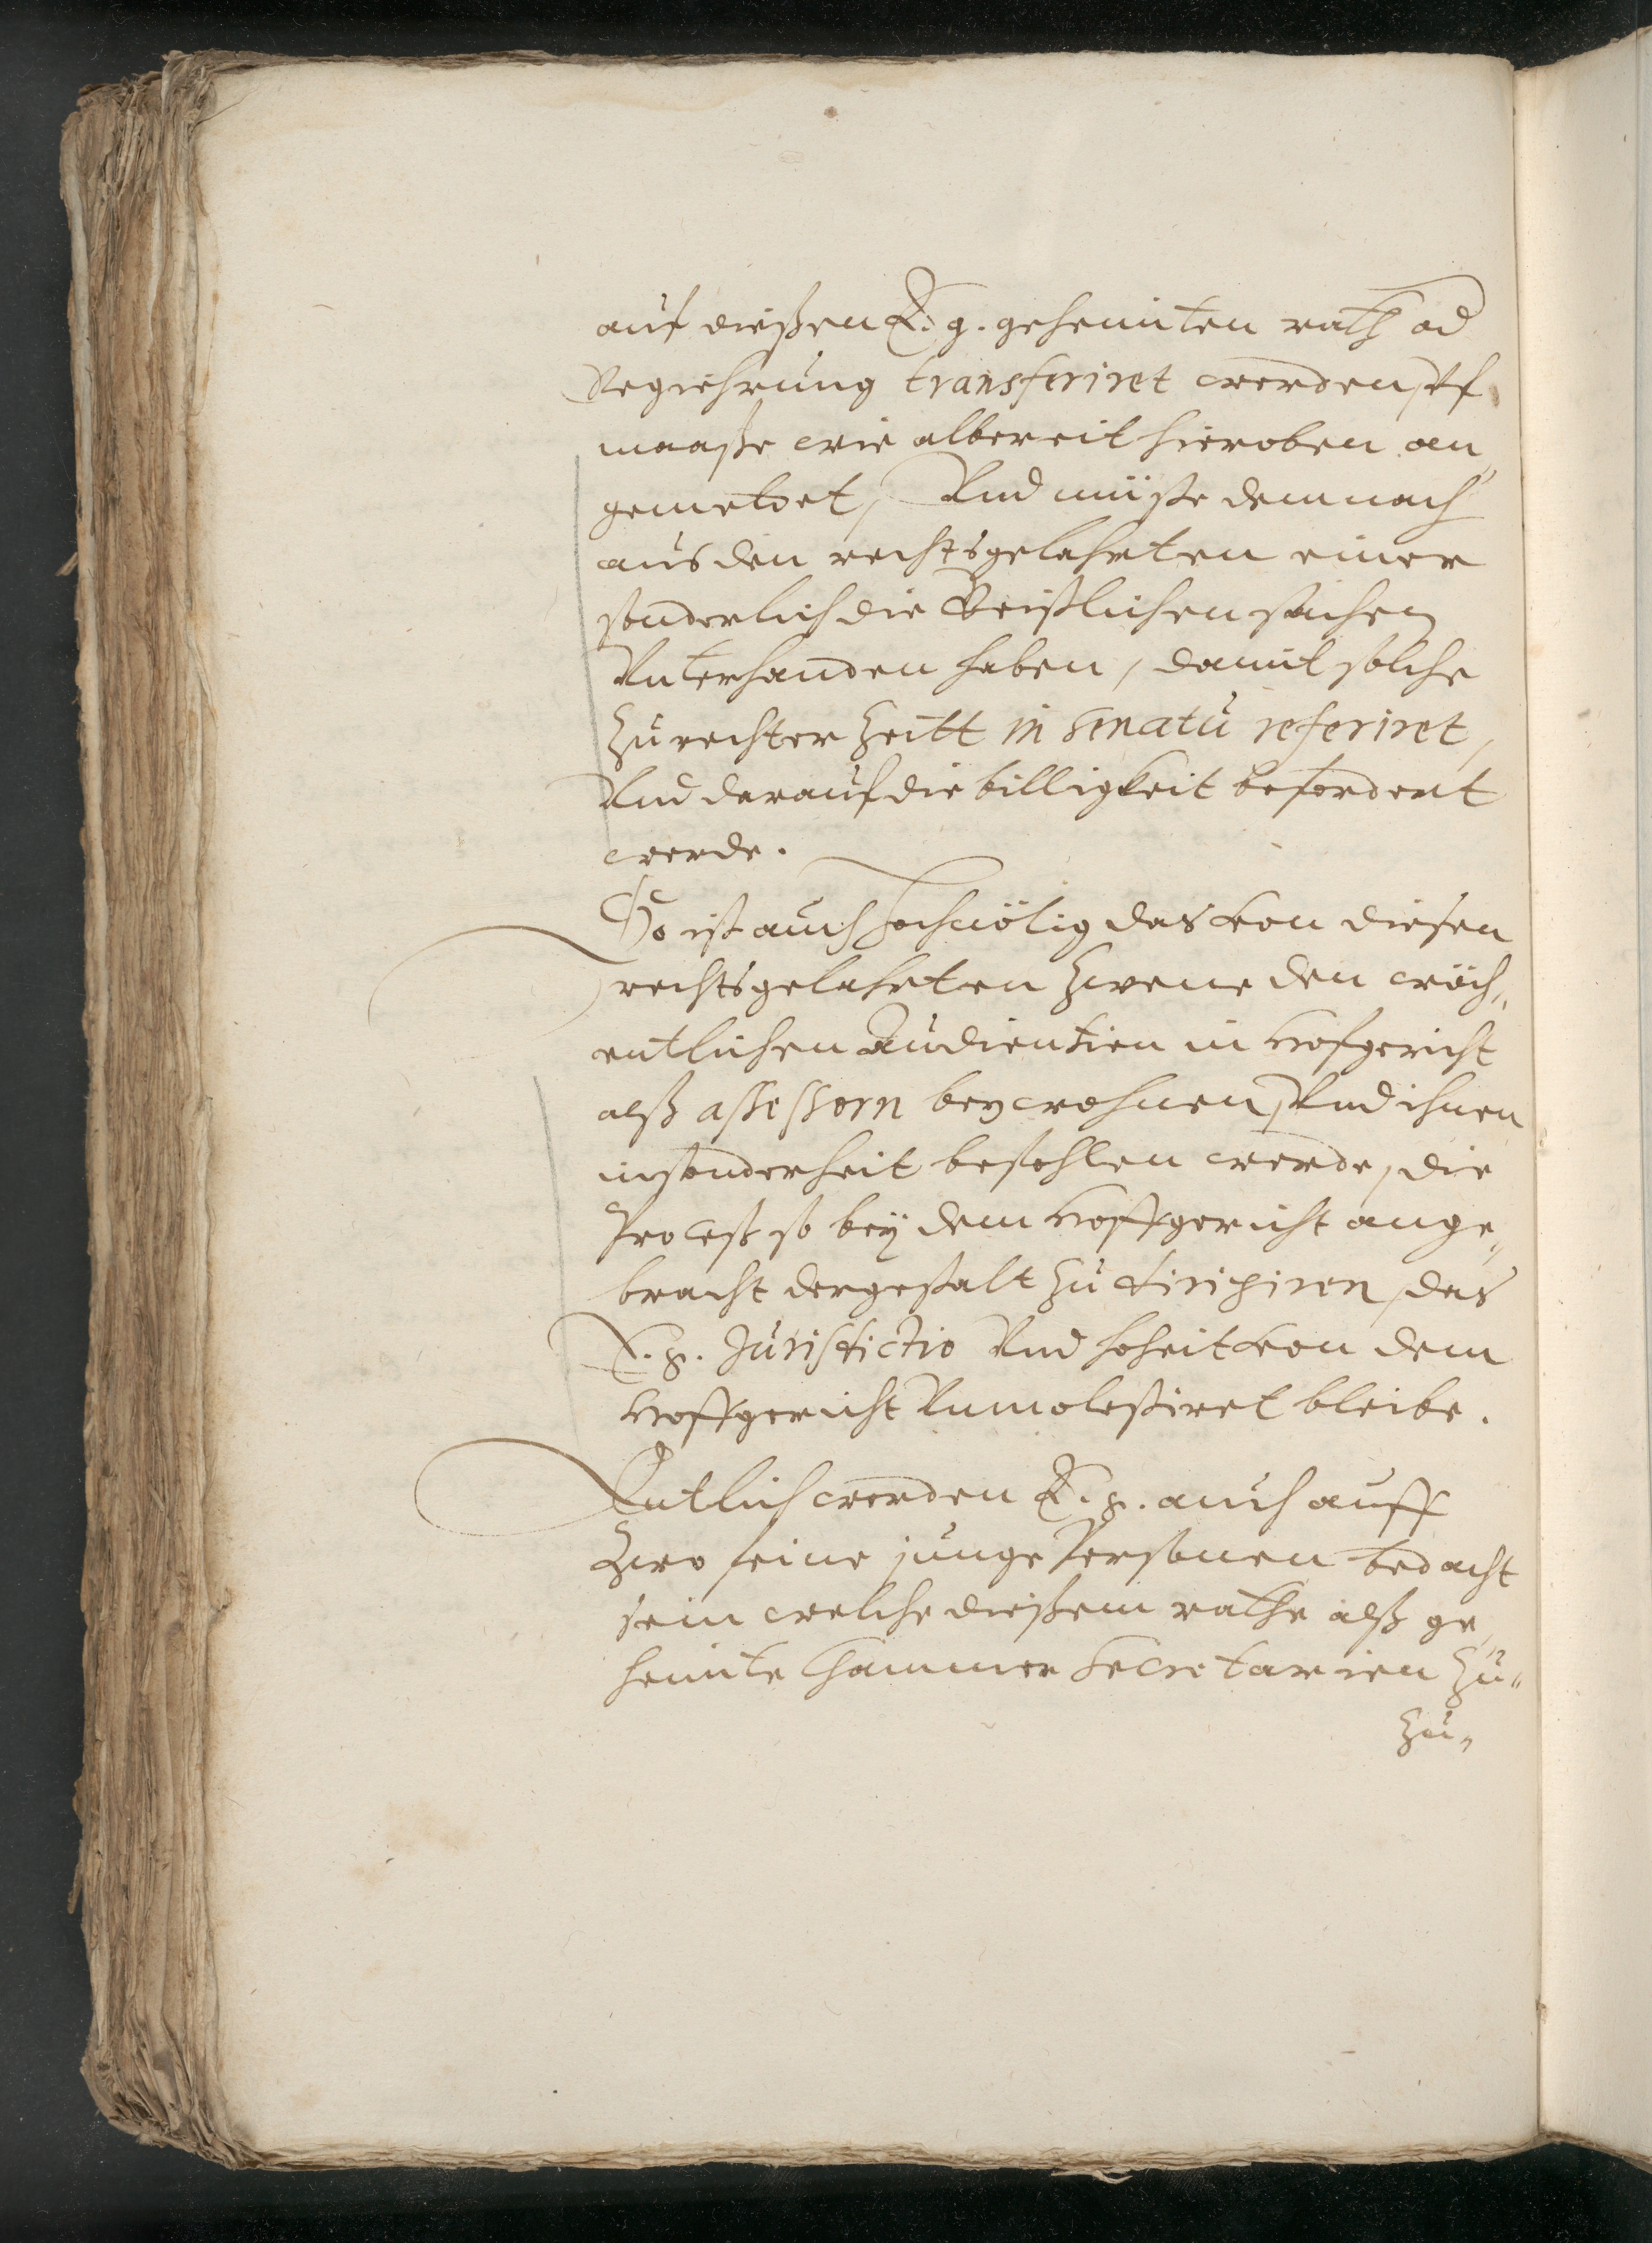 auf dießen E. g. geheimten rath od
Regiehrung transferiret werden, vf
maaße wie albereit hieroben an„
gemeldet, Vnd müste demnach
aus den rechtsgelahrten einer
sonderlich die Geistlichen sachen
Vnterhanden haben, damit solche
zu rechter Zeitt in senatu referiret,
Vnd darauf die billigkeit befordert
werde.
So ist auch hochnötig das von diesen
rechtsgelahrten zwene den wöch„
entlichen Audientien in Hofgericht
alß assessorn beywohnen, Vnd ihnen
insonderheit befohlen werde, die
Proceß so bey dem Hoffgericht ange„
bracht dergestalt zu dirigiren, das
E. g. Jurisdictio Vnd hoheit von dem
Hoffgericht Vnmolestiret bleibe.
Entlich werden E. g. auch auff
zwo feine junge Personen bedacht
sein welche dießem rathe alß ge„
heimte Cammer Secretarien zu„
zu„